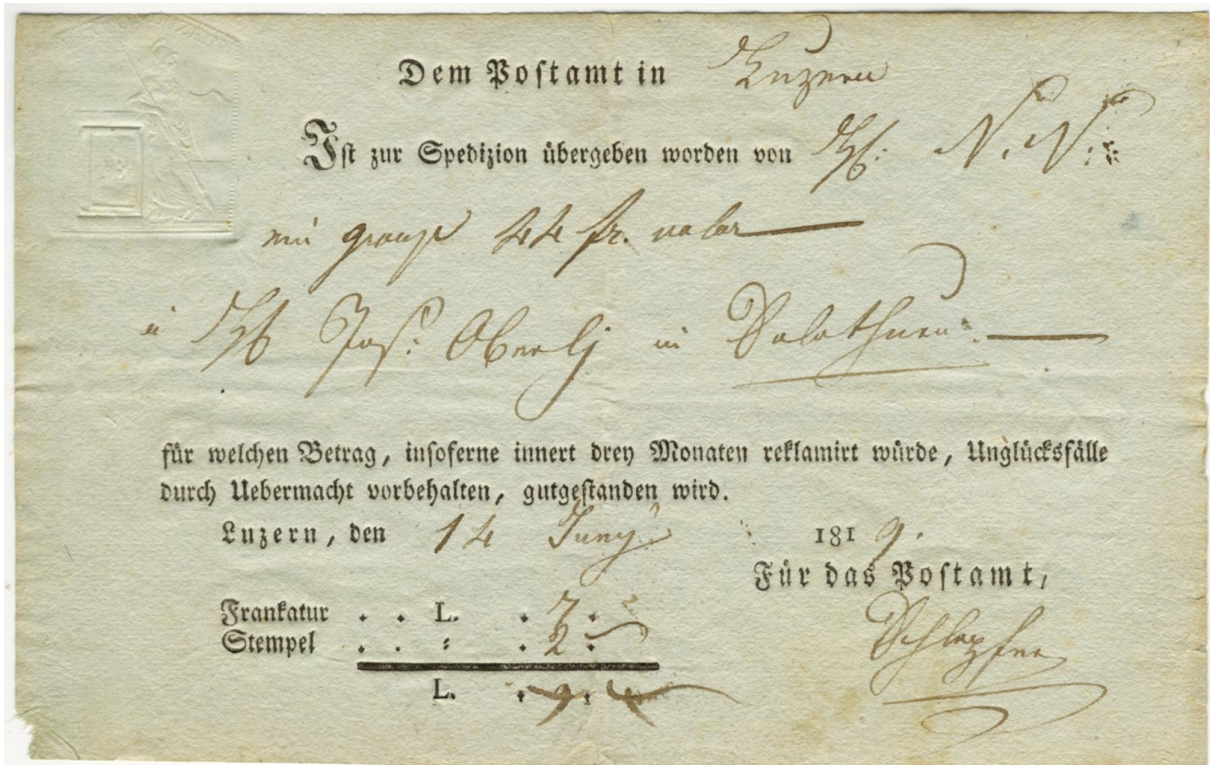 Dem Postamt in Luzern
Ist zur Spedizion übergeben worden von Hh: N. N:
ein groups 44 fr. valor
a Hh Jos: Oberlj in Solothurn:
für welchen Betrag, insoferne innert drey Monaten reklamirt würde, Unglücksfälle
durch Uebermacht vorbehalten, gutgestanden wird.
Luzern, den 14 Juny 1819.
Für das Postamt,
Frankatur . . L. . 7.
Stempel . . : . 2.
L. . 9.